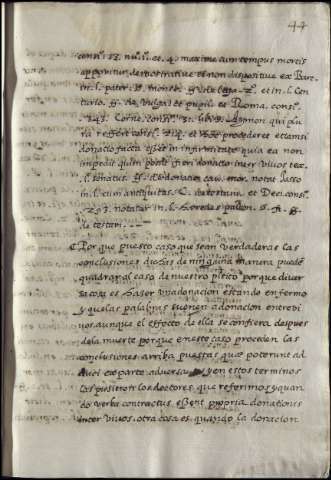 44
consi. 13. nu. . et. 4. maxime cum tempus mortis
apponitur demostrative et non dispositive ex Bar.
in. l. pater. §. . ff. de lega. 2. et in. l. Cen
turio. ff. de vulga. et pupil. et Roma. consi.
243. Corne. consi. 31. lib. Iasmon qui plu
ra refert consi. 214. et procederet etiamsi
donatio facta esset in infirmitate quia ea non
impedit quin possit fieri donatio inter vivos tex.
l. senatus. ff. de donatio. cau. mor. notat Iasso
in. l. cum antiquitas. C. de testam. et Deci. consi.
293. notatur in. l. heredes palam. §. fi. ff.
de testam.
Porque puesto caso que sean verdaderas las
conclusiones dichas de ninguna manera puede
quadrar al caso de nuestro pleito porque diver
sa cosa es haser una donacion estando enfermo
y que las palabras suenen donacion entrebi
vos aunque el effecto de ella se confiera despues
de la muerte porque en este caso proceden las
conclusiones arriba puestas quae poterunt ad
duci ex parte adversa y en estos terminos
las pusieron los doctores que referimos y quan
do verba contractus essent propria donationis
inter vivos. otra cosa es quando la donacion